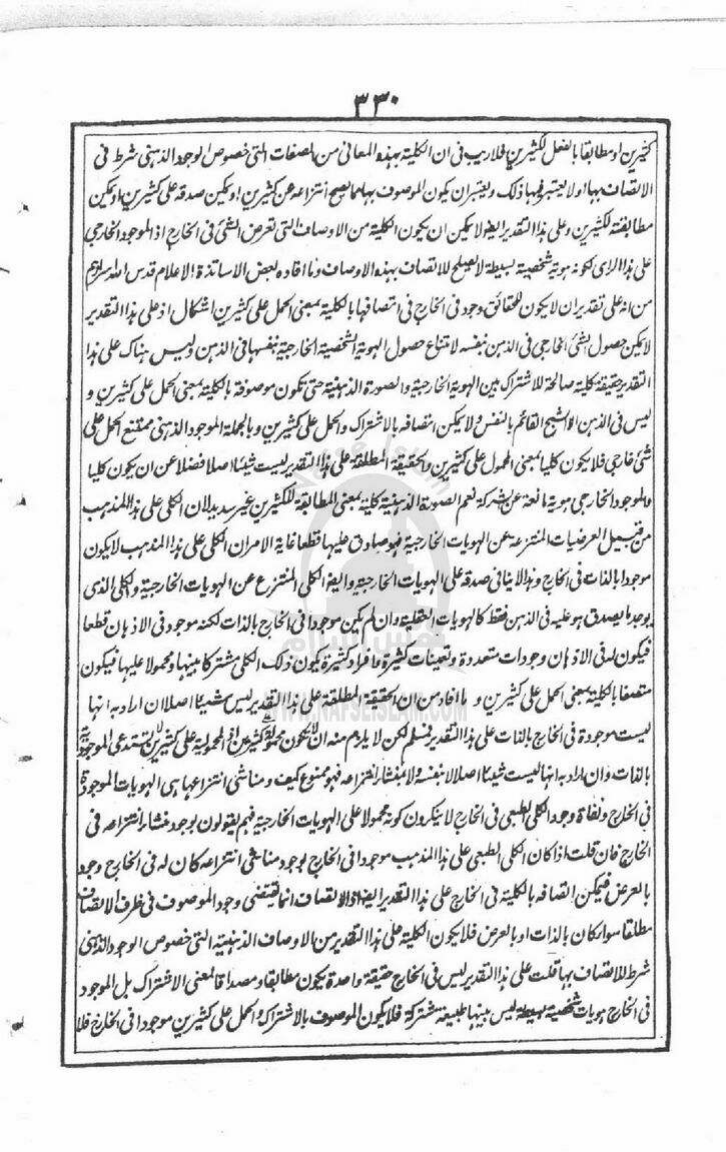 ٣٣٠
كثيرين او مطابقا بالفعل لكثيرين فلا ريب فى ان الكلية بهذه المعانى من الصفات التى خصوص الوجود الذهنى شرط فى
الاتصاف بها او لا يعتبر فيها ذلك ويعتبر ان يكون الموصوف بها مما يصح انتزاعه عن كثيرين او يمكن صدقه على كثيرين او يمكن
مطابقته لكثيرين وعلى هذا التقدير ايضا لا يمكن ان يكون الكلية من الاوصاف التى تعرض الشئ فى الخارج اذ الموجود الخارجى
على هذا الراى لكونه هوية شخصية بسيطة لا يصلح للاتصاف بهذه الاوصاف وما افاده بعض الاساتذة الاعلام قدس الله سرهم
من انه على تقدير ان لا يكون للحقائق وجود فى الخارج فى اتصافها بالكلية بمعنى الحمل على كثيرين اشكال اذ على هذا التقدير
لا يمكن حصول الشئ الخارجى فى الذهن بنفسه لامتناع حصول الهوية الشخصية الخارجية بنفسها فى الذهن وليس هناك على هذا
التقدير حقيقة كلية صالحة للاشتراك بين الهوية الخارجية والصورة الذهنية حتى تكون موصوفة بالكلية بمعنى الحمل على كثيرين و
ليس فى الذهن الا الشبح القائم بالنفس ولا يمكن اتصافه بالاشتراك والحمل على كثيرين وبالجملة الموجود الذهنى ممتنع الحمل على
شئ خارجى فلا يكون كليا بمعنى المحمول على كثيرين والحقيقة المطلقة على هذا التقدير ليست شيئا اصلا فضلا عن ان يكون كليا
والموجود الخارجى هوية مانعة عن شركة نعم الصورة الذهنية كلية بمعنى المطابقة للكثيرين غير سديد لان الكلى على هذا المذهب
من قبيل العرضيات المنتزعة عن الهويات الخارجية فهو صادق عليها قطعا غاية الامر ان الكلى على هذا المذهب لا يكون
موجودا بالذات فى الخارج وهذا لا ينافى صدقه على الهويات الخارجية وايضا الكلى المنتزع عن الهويات الخارجية والكلى الذى
يوجد ما يصدق هو عليه فى الذهن فقط كالهويات العقلية وان لم يكن موجودا فى الخارج بالذات لكنه موجود فى الاذهان قطعا
فيكون له فى الاذهان وجودات متعددة وتعينات كثيرة وافراد كثيرة يكون ذلك الكلى مشتركا بينها ومحمولا عليها فيكون
متصفا بالكلية بمعنى الحمل على كثيرين و ما افاد من ان الحقيقة المطلقة على هذا التقدير ليس شيئا اصلا ان اراد به انها
ليست موجودة فى الخارج بالذات على هذا التقدير فمسلم لكن لا يلزم منه ان لا يكون محمولا على كثيرين اذ المحمولية على كثيرين لا يستدعى الموجودية
بالذات وان اراد به انها ليست شيئا اصلا لا بنفسه ولا بمنشأ انتزاعه فهو ممنوع كيف ومناشى انتزاعها هى الهويات الموجودة
فى الخارج ونفاة وجود الكلى الطبعى فى الخارج لا ينكرون كونه محمولا على الهويات الخارجية فهم يقولون بوجود منشأ انتزاعه فى
الخارج فان قلت اذا كان الكلى الطبعى على هذا المذهب موجودا فى الخارج بوجود مناشى انتزاعه كان له فى الخارج وجود
بالعرض فيمكن اتصافه بالكلية فى الخارج على هذا التقدير ايضا اذ الاتصاف انما يقتضى وجود الموصوف فى ظرف الاتصاف
مطلقا سواء كان بالذات او بالعرض فلا يكون الكلية على هذا التقدير من الاوصاف الذهنية التى خصوص الوجود الذهنى
شرط للاتصاف بها قلت على هذا التقدير ليس فى الخارج حقيقة واحدة يكون مطابقا ومصداقا لمعنى الاشتراك بل الموجود
فى الخارج هويات شخصية بسيطة ليس بينها طبيعة مشتركة فلا يكون الموصوف بالاشتراك والحمل على كثيرين موجودا فى الخارج فلا
نفس اسلام
WWW.NAFSEISLAM.COM